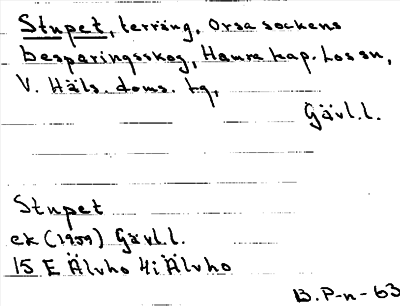 Stupet, terräng, Orsa sockens
besparingsskog, Hamra kap. Los sn,
V. Häls. doms. tg,
Gävl.l.
Stupet
ek (1959) Gävl.l.
15 E Älvho 4i Älvho
B.P-n-63